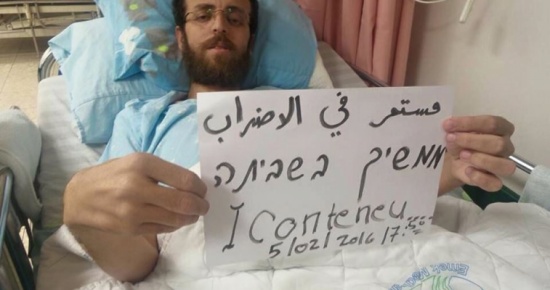 مستمر في الاضراب
ממשיך בשביתה
I Conteneu
5/02/2016 17:50